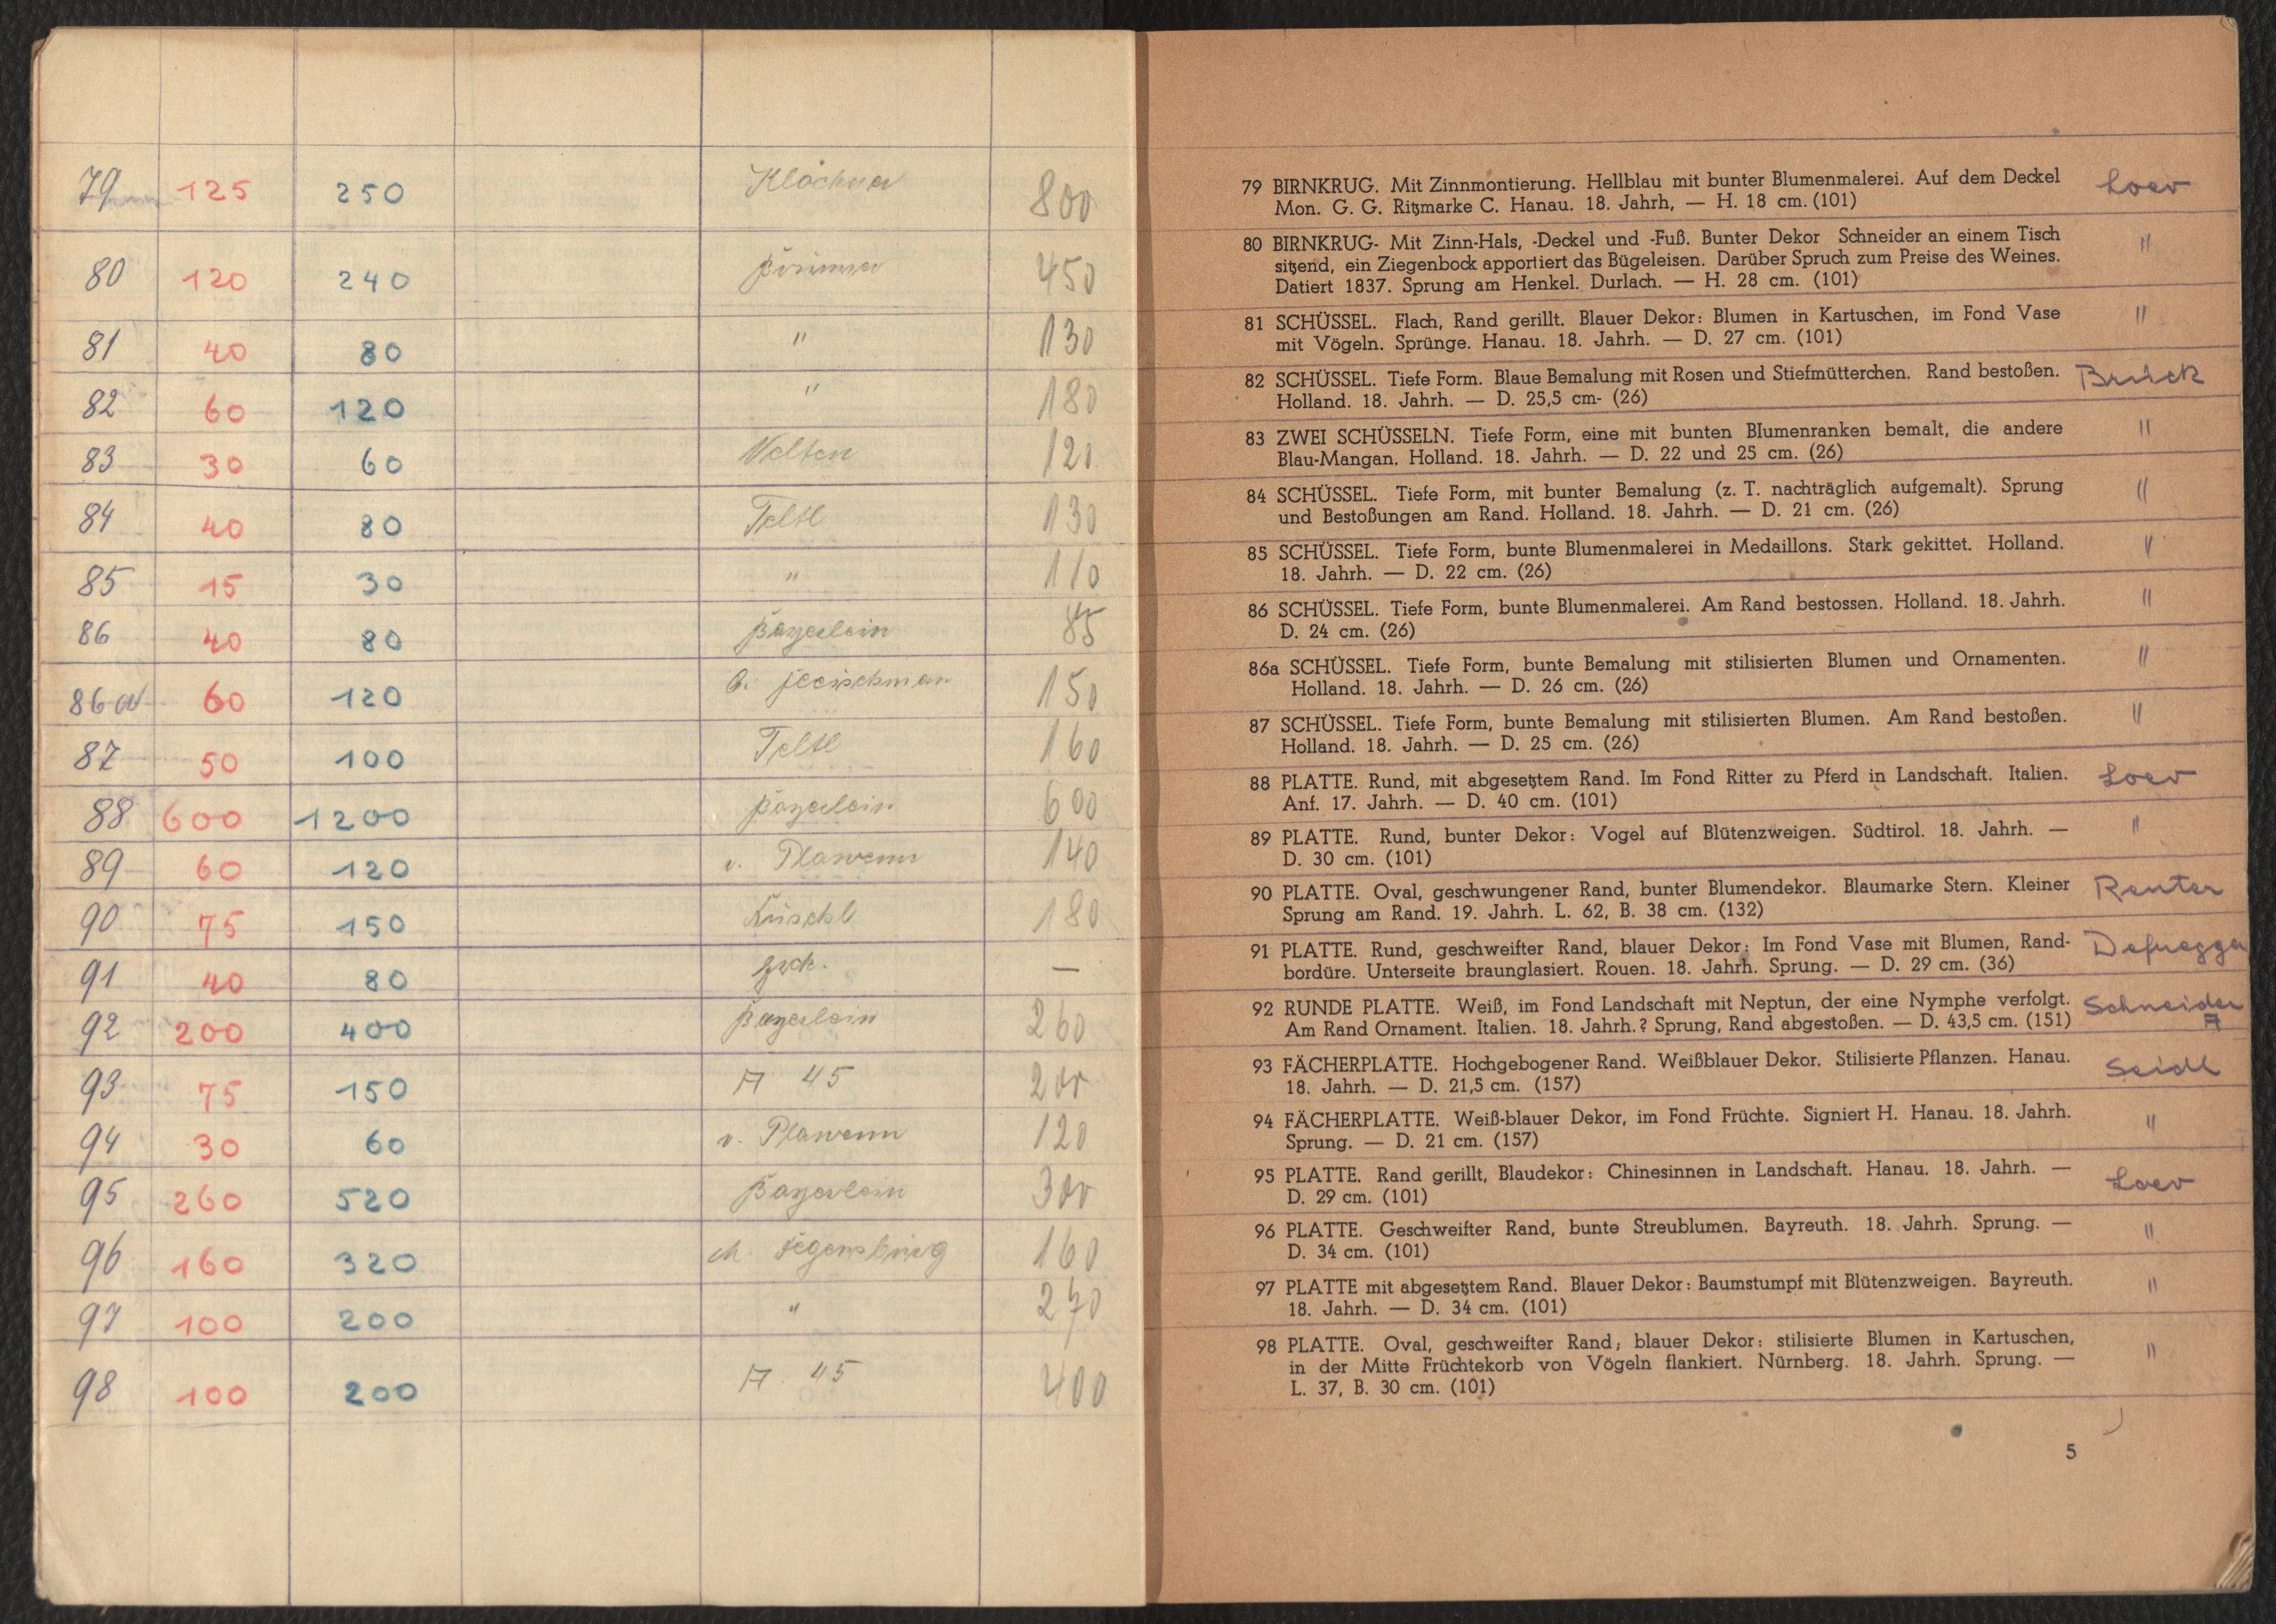 79 125 250 Klöckner 800
80 120 240 450
81 40 80 " 130
82 60 120 " 180
83 30 60 Velten 120
84 40 80 Teltl 130
85 15 30 " 110
86 40 80 Bayerlein 85
86a 60 120 150
87 50 100 Teltl 160
88 600 1200 Bayerlein 600
89 60 120 v. Plawenn 140
90 75 150 180
91 40 80 zrck. —
92 200 400 Bayerlein 260
93 75 150 A 45 200
94 30 60 v. Plawenn 120
95 260 520 Bayerlein 300
96 160 320 160
97 100 200 " 270
98 100 200 A 45 400
79 BIRNKRUG. Mit Zinnmontierung. Hellblau mit bunter Blumenmalerei. Auf dem Deckel Loev
Mon. G. G. Ritzmarke C. Hanau. 18. Jahrh, — H. 18 cm. (101)
80 BIRNKRUG- Mit Zinn-Hals, -Deckel und -Fuß. Bunter Dekor Schneider an einem Tisch "
sitzend, ein Ziegenbock apportiert das Bügeleisen. Darüber Spruch zum Preise des Weines.
Datiert 1837. Sprung am Henkel. Durlach. — H. 28 cm. (101)
81 SCHÜSSEL. Flach, Rand gerillt. Blauer Dekor: Blumen in Kartuschen, im Fond Vase "
mit Vögeln. Sprünge. Hanau. 18. Jahrh. — D. 27 cm. (101)
82 SCHÜSSEL. Tiefe Form. Blaue Bemalung mit Rosen und Stiefmütterchen. Rand bestoßen. Brück
Holland. 18. Jahrh. — D. 25,5 cm- (26)
83 ZWEI SCHÜSSELN. Tiefe Form, eine mit bunten Blumenranken bemalt, die andere "
Blau-Mangan. Holland. 18. Jahrh. — D. 22 und 25 cm. (26)
84 SCHÜSSEL. Tiefe Form, mit bunter Bemalung (z. T. nachträglich aufgemalt). Sprung "
und Bestoßungen am Rand. Holland. 18. Jahrh. — D. 21 cm. (26)
85 SCHÜSSEL. Tiefe Form, bunte Blumenmalerei in Medaillons. Stark gekittet. Holland. "
18. Jahrh. — D. 22 cm. (26)
86 SCHÜSSEL. Tiefe Form, bunte Blumenmalerei. Am Rand bestossen. Holland. 18. Jahrh. "
D. 24 cm. (26)
86a SCHÜSSEL. Tiefe Form, bunte Bemalung mit stilisierten Blumen und Ornamenten. "
Holland. 18. Jahrh. — D. 26 cm. (26)
87 SCHÜSSEL. Tiefe Form, bunte Bemalung mit stilisierten Blumen. Am Rand bestoßen. "
Holland. 18. Jahrh. — D. 25 cm. (26)
88 PLATTE. Rund, mit abgesetztem Rand. Im Fond Ritter zu Pferd in Landschaft. Italien. Loev
Anf. 17. Jahrh. — D. 40 cm. (101)
89 PLATTE. Rund, bunter Dekor: Vogel auf Blütenzweigen. Südtirol. 18. Jahrh. — "
D. 30 cm. (101)
90 PLATTE. Oval, geschwungener Rand, bunter Blumendekor. Blaumarke Stern. Kleiner Renter
Sprung am Rand. 19. Jahrh. L. 62, B. 38 cm. (132)
91 PLATTE. Rund, geschweifter Rand, blauer Dekor: Im Fond Vase mit Blumen, Rand- Defregger
bordüre. Unterseite braunglasiert. Rouen. 18. Jahrh. Sprung. — D. 29 cm. (36)
92 RUNDE PLATTE. Weiß, im Fond Landschaft mit Neptun, der eine Nymphe verfolgt. Schneider A
Am Rand Ornament. Italien. 18. Jahrh.? Sprung, Rand abgestoßen. — D. 43,5 cm. (151)
93 FÄCHERPLATTE. Hochgebogener Rand. Weißblauer Dekor. Stilisierte Pflanzen. Hanau. Seidl
18. Jahrh. — D. 21,5 cm. (157)
94 FÄCHERPLATTE. Weiß-blauer Dekor, im Fond Früchte. Signiert H. Hanau. 18. Jahrh. "
Sprung. — D. 21 cm. (157)
95 PLATTE. Rand gerillt, Blaudekor: Chinesinnen in Landschaft. Hanau. 18. Jahrh. — Loev
D. 29 cm. (101)
96 PLATTE. Geschweifter Rand, bunte Streublumen. Bayreuth. 18. Jahrh. Sprung. — "
D. 34 cm. (101)
97 PLATTE mit abgesetztem Rand. Blauer Dekor: Baumstumpf mit Blütenzweigen. Bayreuth. "
18. Jahrh. — D. 34 cm. (101)
98 PLATTE. Oval, geschweifter Rand; blauer Dekor: stilisierte Blumen in Kartuschen, "
in der Mitte Früchtekorb von Vögeln flankiert. Nürnberg. 18. Jahrh. Sprung. —
L. 37, B. 30 cm. (101)
5